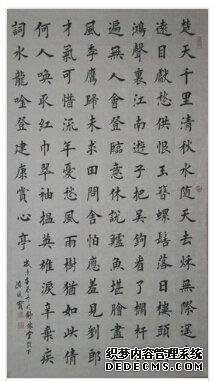 楚天千里清秋水随天去秌無際遥岑
遠目獻愁供恨玉簪螺髻落日樓頭斷
鴻聲裏江南遊子把吴鈎看了欄杆拍
遍無人會登臨意休説鱸魚堪膾盡西
風季鷹歸未求田問舍怕應羞見劉郎
才氣可惜流年憂愁風雨樹猶如此倩
何人喚取紅巾翠袖揾英雄淚辛棄疾
詞水龍唫登建康賞心亭